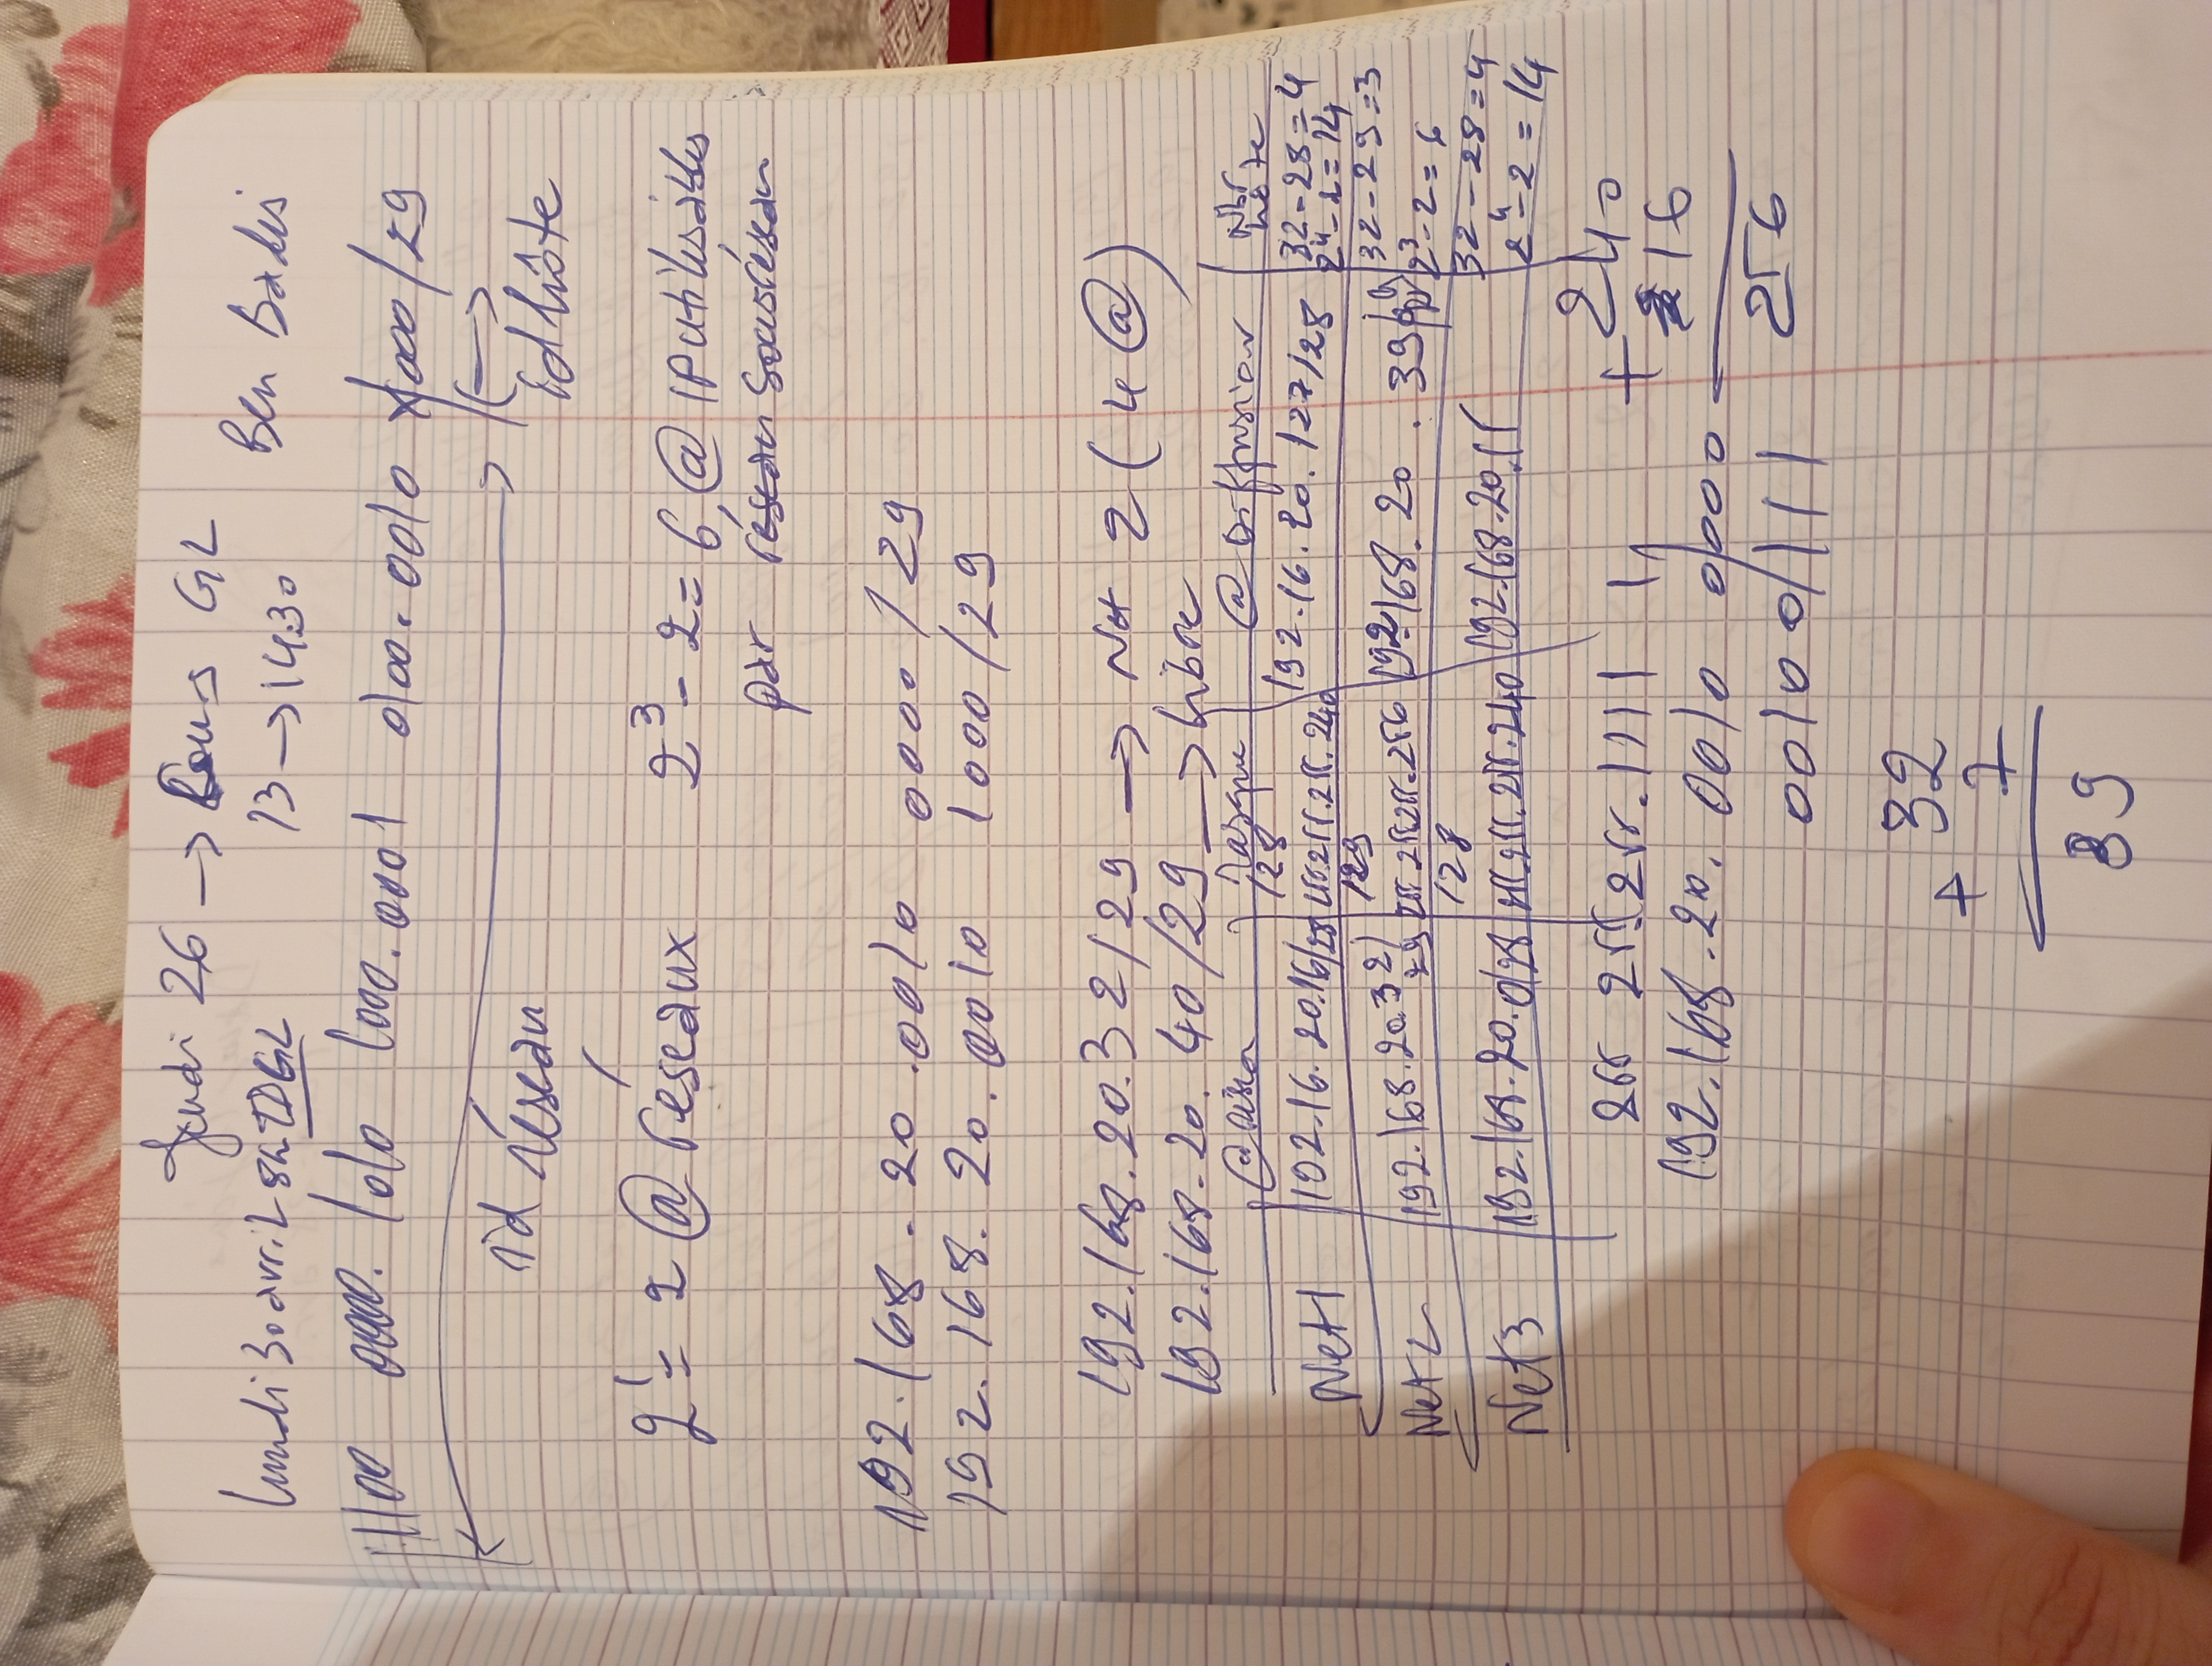 Jeudi 26 → Cours GL Ben badis
lundi 30 avril 8h TD GL 13 → 1430
1100 0000. 1010 1000. 0001 0100. 0010 1000 / 29
id réseau id hôte
2¹ = 2 @ réseaux 2³ - 2 = 6 @ IP utilisables
par réseau sous réseau
192.168.20.0010 0000 / 29
192.168.20.0010 1000 / 29
192.168.20.32 / 29 → Net 2 (4 @)
192.168.20.40 / 29 → libre
@ masque @ Diffusion Nbr hôte
Net 1 192.16.20.16/28 128 255.255.240 192.16.20.127/28 32-28=4
2⁴-2=14
Net 2 192.168.20.32/29 129 192.168.20.39/29 32-29=3
2³-2=6
Net 3 192.168.20.0/28 128 255.255.255.240 192.168.20.15 32-28=4
2⁴-2=14
255 255 255.1111 1 + 240
192.168.20.0010 0/000 16
0010 0/111 256
32
+ 7
39